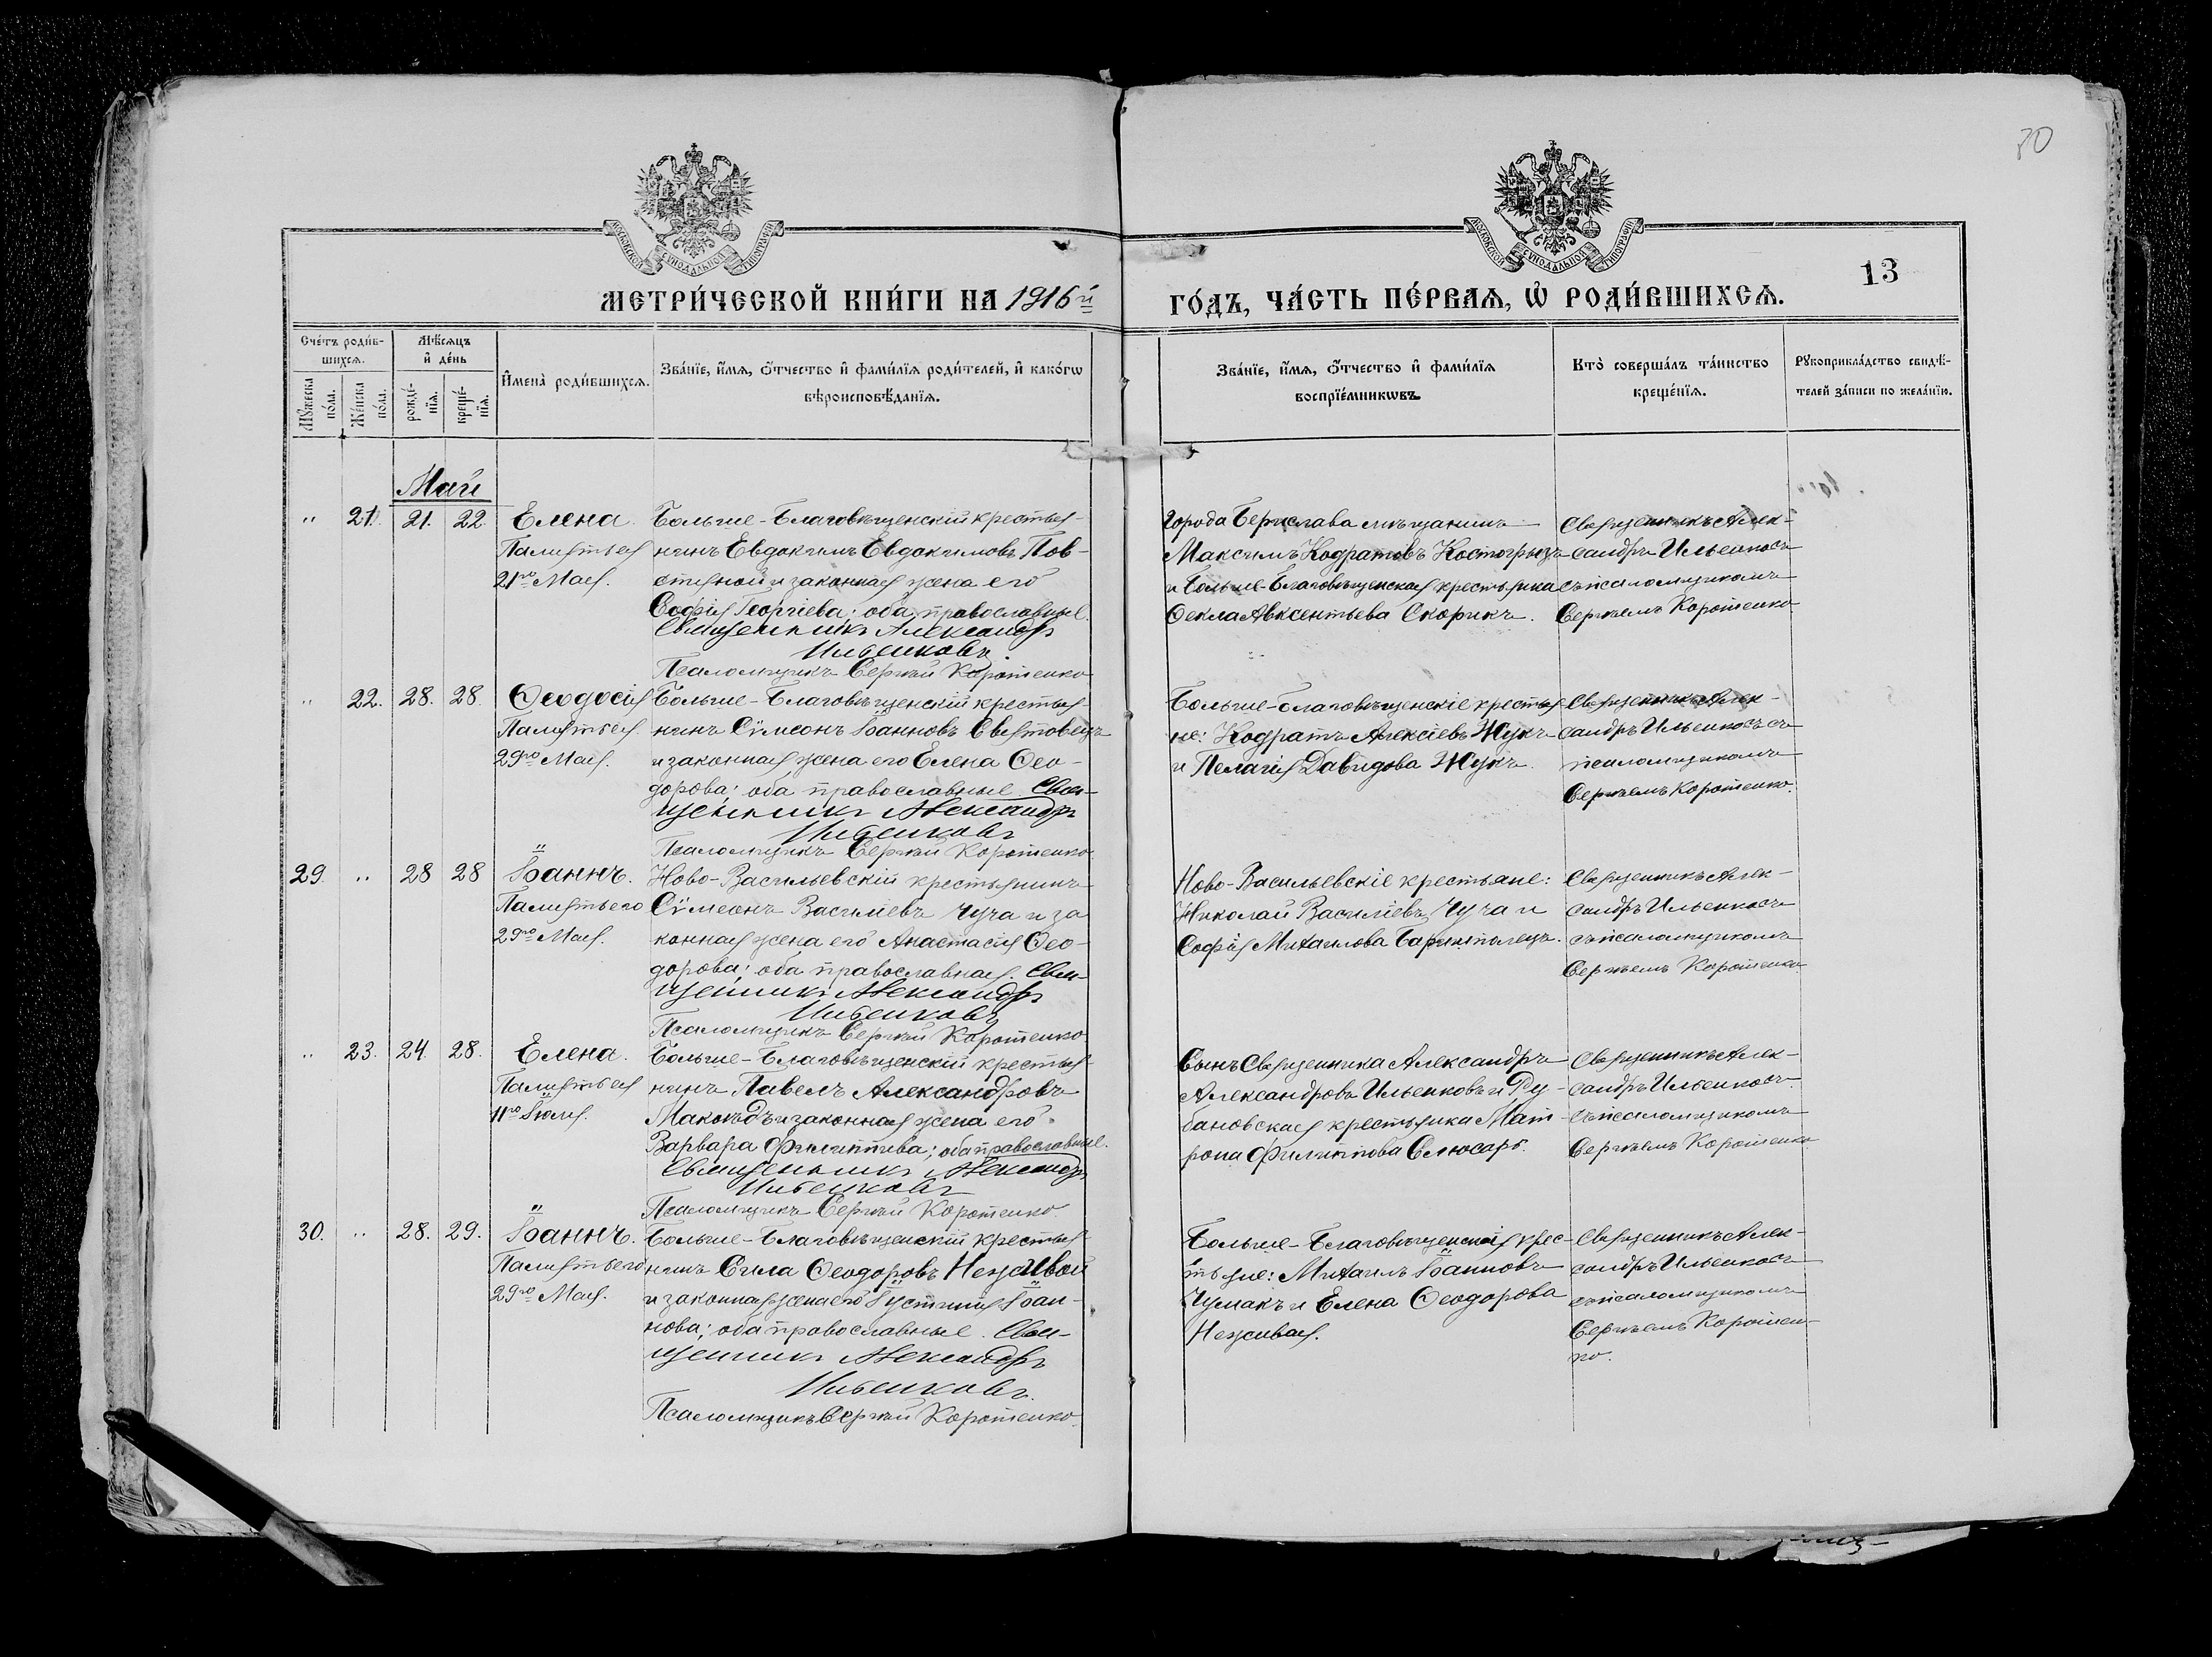 30
МОСКОВСКОЙ СѴНОДАЛЬНОЙ ТИПОГРАФІИ
МОСКОВСКОЙ СѴНОДАЛЬНОЙ ТИПОГРАФІИ
13
МЕТРИ́ЧЕСКОЙ КНИ́ГИ НА 1916й
ГО́ДЪ, ЧА́СТЬ ПЕ́РВАЯ, Ѡ РОДИ́ВШИХСЯ.
Сче́тъ роди́в-
шихся.
Му́жеска по́ла.
Же́нска по́ла.
Мѣ́сяцъ
и҆ де́нь
рожде́-
нїя.
креще́-
нїя.
И҆мена̀ роди́вшихся.
Зва́нїе, и҆́мя, о҆́тчество и҆ фами́лїя роди́телей, и҆ како́гѡ
вѣроисповѣ́данїя.
Зва́нїе, и҆́мя, о҆́тчество и҆ фами́лїя
воспрїе́мникѡвъ.
Кто̀ соверша́лъ та́инство
креще́нїя.
Рꙋкоприкла́дство свидѣ́-
телей за́писи по жела́нїю.
Май
" 21. 21. 22. Елена.
Памятьея
21го Мая.
Больше-Благовѣщенскій крестья-
нинъ Евдокимъ Евдокимовъ Пов-
стяной и законная жена его
Софія Георгіева; оба православные.
Священникъ Александръ
Ильенковъ
Псаломщикъ Сергѣй Коротенко
Города Берислава мѣщанинъ
Максимъ Кодратовъ Костогрызъ
и Больше-Благовѣщенская крестьянка
Ѳекла Авксентьева Скорикъ.
Священникъ Алек-
сандръ Ильенковъ
съ псаломщикомъ
Сергѣемъ Коротенко
" 22. 28. 28. Ѳеодосія
Памятьея
29го Мая.
Больше-Благовѣщенскій крестья-
нинъ Сѵмеонъ Іоанновъ Святовецъ
и законная жена его Елена Ѳео-
дорова; оба православные Свя-
щенникъ Александръ
Ильенковъ
Псаломщикъ Сергѣй Коротенко.
Больше-Благовѣщенскіе крестья-
не: Кодратъ Алексіевъ Жукъ
и Пелагія Давидова Жукъ.
Священникъ Алек-
сандръ Ильенковъ съ
псаломщикомъ
Сергѣемъ Коротенко.
29. " 28 28 Іоаннъ.
Памятьего
29го Мая.
Ново-Васильевскій крестьянинъ
Сѵмеонъ Василіевъ Чуча и за
конная жена его Анастасія Ѳео-
дорова; оба православная. Свя-
щенникъ Александръ
Ильенковъ
Псаломщикъ Сергѣй Коротенко
Ново-Васильевскіе крестьяне:
Николай Василіевъ Чуча и
Софія Михаилова
Священникъ Алек-
сандръ Ильенковъ
съ псаломщикомъ
Сергѣемъ Коротенко
" 23. 24 28. Елена.
Памятьея
11го Іюля.
Больше-Благовѣщенскій крестья-
нинъ Павелъ Александровъ
Макоѣдъ и законная жена его
Варвара Филиппова; оба православные.
Священникъ Александръ
Ильенковъ
Псаломщикъ Сергѣй Коротенко
Сынъ Священника Александръ
Александровъ Ильенковъ и Ру-
бановская крестьянка Мат-
рона Филиппова Слюсарь.
Священникъ Алек-
сандръ Ильенковъ
съ псаломщикомъ
Сергѣемъ Коротенко
30. " 28. 29. Іоаннъ.
Памятьего
29го Мая.
Больше-Благовѣщенскій крестья-
нинъ Сила Ѳеодоровъ Неживой
и законная жена его Іустинія Іоан-
нова; оба православные. Свя-
щенникъ Александръ
Ильенковъ.
Псаломщикъ Сергѣй Коротенко.
Больше-Благовѣщенскія крес-
тьяне: Михаилъ Іоанновъ
Чумакъ и Елена Ѳеодорова
Неживая.
Священникъ Алек-
сандръ Ильенковъ
съ псаломщикомъ
Сергѣемъ Коротен-
ко.